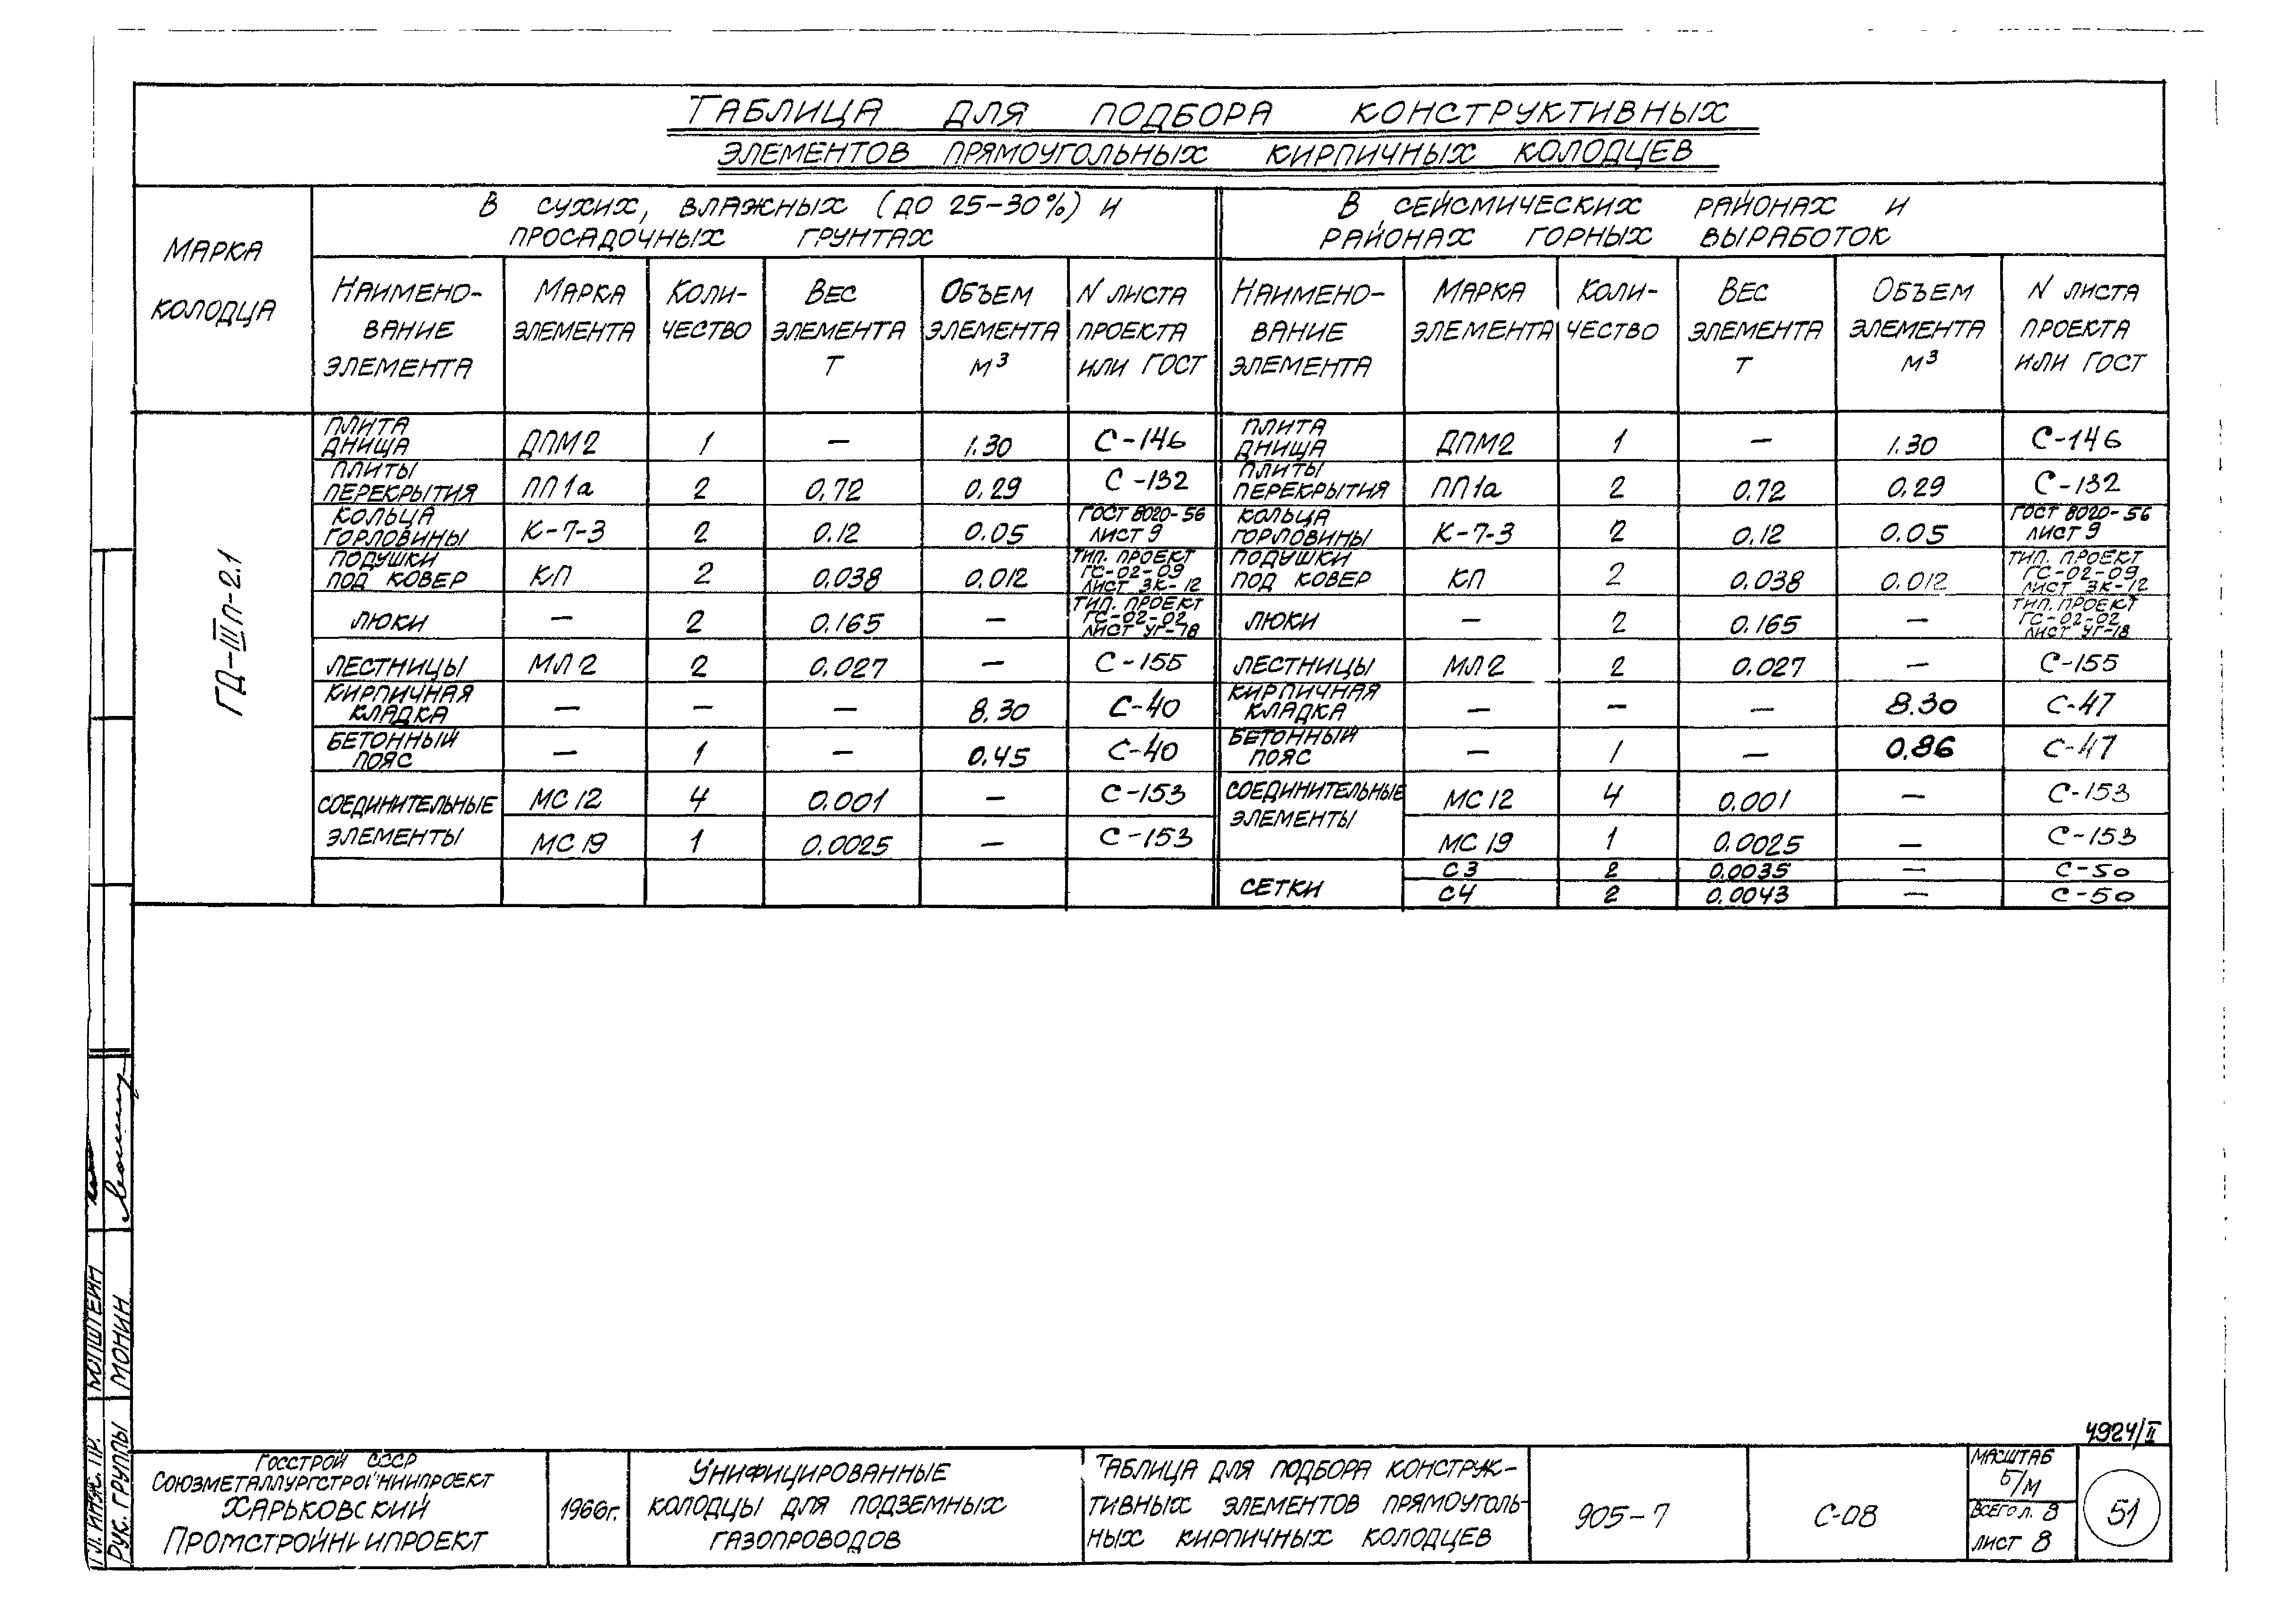 ТАБЛИЦА ДЛЯ ПОДБОРА КОНСТРУКТИВНЫХ
ЭЛЕМЕНТОВ ПРЯМОУГОЛЬНЫХ КИРПИЧНЫХ КОЛОДЦЕВ
МАРКА
КОЛОДЦА
В СУХИХ, ВЛАЖНЫХ (ДО 25-30%) И
ПРОСАДОЧНЫХ ГРУНТАХ
В СЕЙСМИЧЕСКИХ РАЙОНАХ И
РАЙОНАХ ГОРНЫХ ВЫРАБОТОК
НАИМЕНО- МАРКА КОЛИ- ВЕС ОБЪЕМ N ЛИСТА НАИМЕНО- МАРКА КОЛИ- ВЕС ОБЪЕМ N ЛИСТА
ВАНИЕ ЭЛЕМЕНТА ЧЕСТВО ЭЛЕМЕНТА ЭЛЕМЕНТА ПРОЕКТА ВАНИЕ ЭЛЕМЕНТА ЧЕСТВО ЭЛЕМЕНТА ЭЛЕМЕНТА ПРОЕКТА
ЭЛЕМЕНТА Т М³ ИЛИ ГОСТ ЭЛЕМЕНТА Т М³ ИЛИ ГОСТ
ГД-IIIП-2.1
ПЛИТА
ДНИЩА ДПМ2 1 — 1.30 С-146
ПЛИТА
ДНИЩА ДПМ2 1 — 1.30 С-146
ПЛИТЫ
ПЕРЕКРЫТИЯ ПП1а 2 0,72 0.29 С-132
ПЛИТЫ
ПЕРЕКРЫТИЯ ПП1а 2 0.72 0,29 С-132
КОЛЬЦА
ГОРЛОВИНЫ К-7-3 2 0.12 0.05 ГОСТ 8020-56
ЛИСТ 9
КОЛЬЦА
ГОРЛОВИНЫ К-7-3 2 0.12 0.05 ГОСТ 8020-56
ЛИСТ 9
ПОДУШКИ
ПОД КОВЕР КП 2 0,038 0.012 ТИП. ПРОЕКТ
ГС-02-09
ЛИСТ ЗК-12
ПОДУШКИ
ПОД КОВЕР КП 2 0.038 0.012 ТИП. ПРОЕКТ
ГС-02-09
ЛИСТ ЗК-12
ЛЮКИ — 2 0.165 — ТИП. ПРОЕКТ
ГС-02-02
ЛИСТ УГ-18
ЛЮКИ — 2 0.165 — ТИП. ПРОЕКТ
ГС-02-02
ЛИСТ УГ-18
ЛЕСТНИЦЫ МЛ2 2 0.027 — С-155
ЛЕСТНИЦЫ МЛ2 2 0.027 — С-155
КИРПИЧНАЯ
КЛАДКА — — — 8.30 С-40
КИРПИЧНАЯ
КЛАДКА — — — 8.30 С-47
БЕТОННЫЙ
ПОЯС — 1 — 0.45 С-40
БЕТОННЫЙ
ПОЯС — 1 — 0.86 С-47
СОЕДИНИТЕЛЬНЫЕ
ЭЛЕМЕНТЫ
МС12 4 0.001 — С-153
МС19 1 0.0025 — С-153
СОЕДИНИТЕЛЬНЫЕ
ЭЛЕМЕНТЫ
МС12 4 0.001 — С-153
МС19 1 0.0025 — С-153
СЕТКИ
С3 2 0.0035 — С-50
С4 2 0.0043 — С-50
МОЛШТЕЙН
РУК. ГРУППЫ МОНИН
4924/II
ГОССТРОЙ СССР
СОЮЗМЕТАЛЛУРГСТРОЙНИИПРОЕКТ
ХАРЬКОВСКИЙ
ПРОМСТРОЙНИИПРОЕКТ
1966г.
УНИФИЦИРОВАННЫЕ
КОЛОДЦЫ ДЛЯ ПОДЗЕМНЫХ
ГАЗОПРОВОДОВ
ТАБЛИЦА ДЛЯ ПОДБОРА КОНСТРУК-
ТИВНЫХ ЭЛЕМЕНТОВ ПРЯМОУГОЛЬ-
НЫХ КИРПИЧНЫХ КОЛОДЦЕВ
905-7
С-08
МАСШТАБ
Б/М
ВСЕГО Л. 8
ЛИСТ 8
51